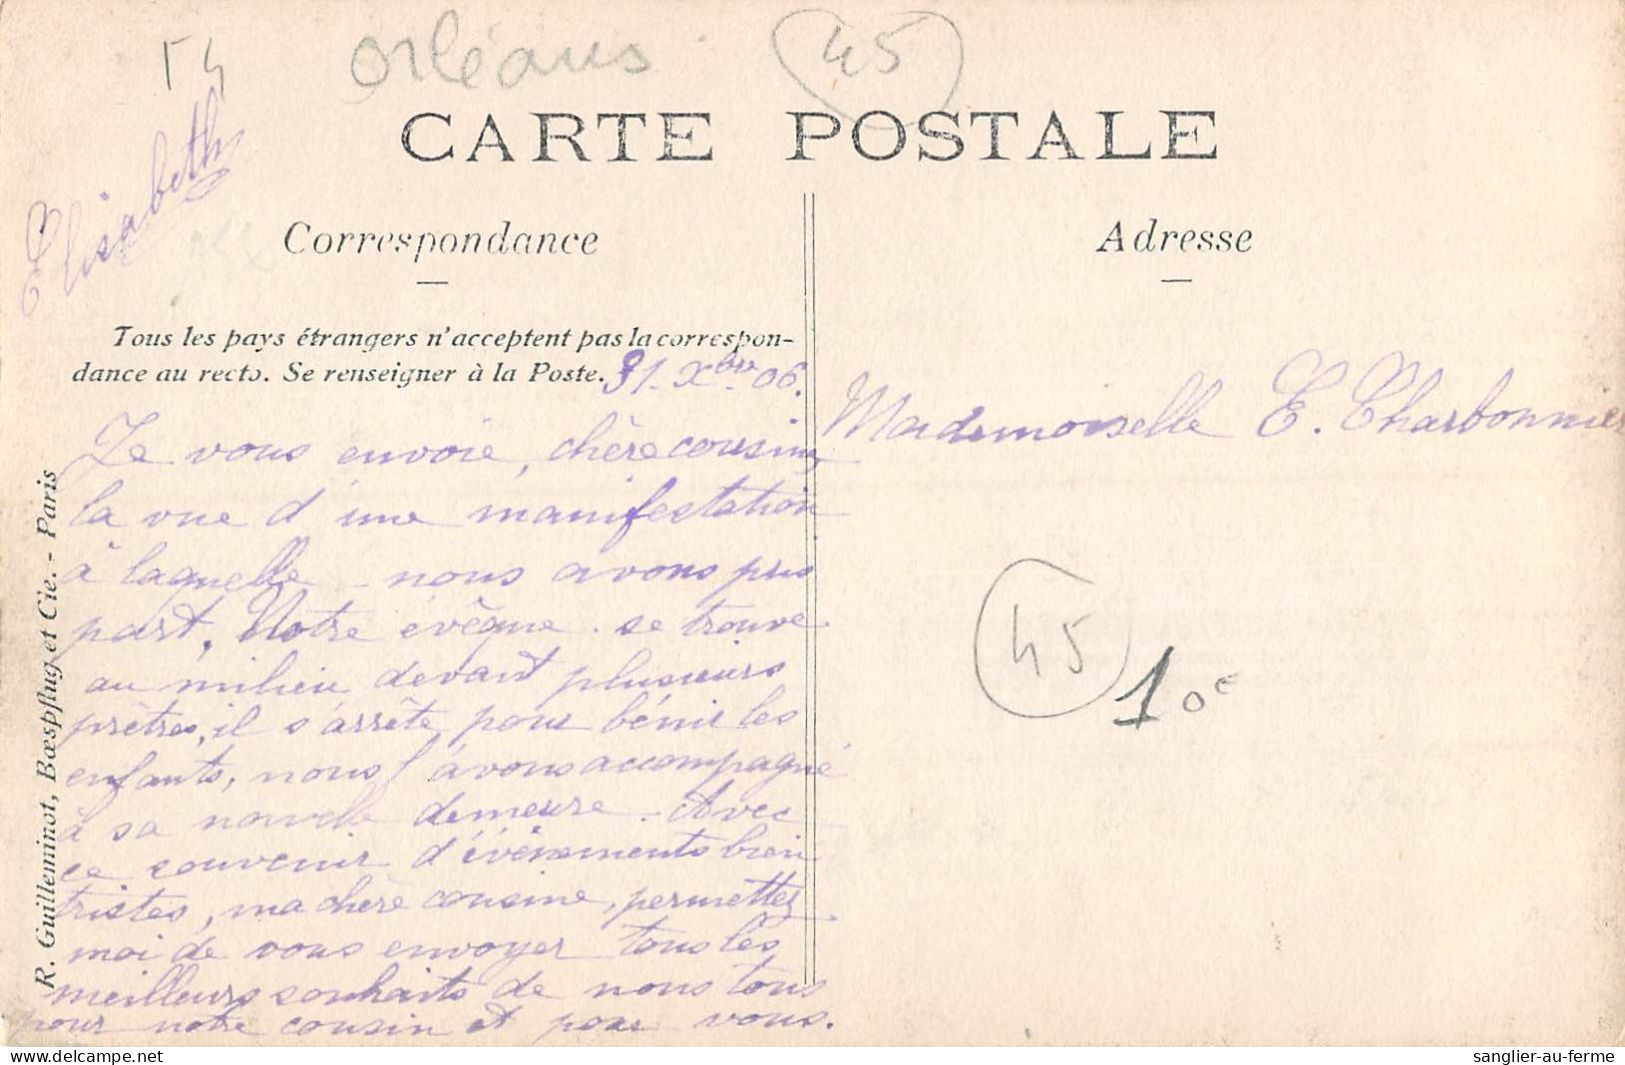 54
Orléans
45
CARTE POSTALE
Elisabeth
Correspondance
Adresse
Tous les pays étrangers n'acceptent pas la correspon-
dance au recto. Se renseigner à la Poste.
31 - Xbre 06.
Je vous envoie, chère cousine,
la vue d'une manifestation
à laquelle nous avons pris
part. Notre évêque se trouve
au milieu devant plusieurs
prêtres, il s'arrête pour bénir les
enfants, nous l'avons accompagné
à sa nouvelle demeure. Avec
ce souvenir d'événements bien
tristes, ma chère cousine, permettez
moi de vous envoyer tous les
meilleurs souhaits de nous tous
pour notre cousin et pour vous.
Mademoiselle E. Charbonnier
45
10€
R. Guilleminot, Bœspflug et Cie. - Paris
Delcampe.net
sanglier-au-ferme